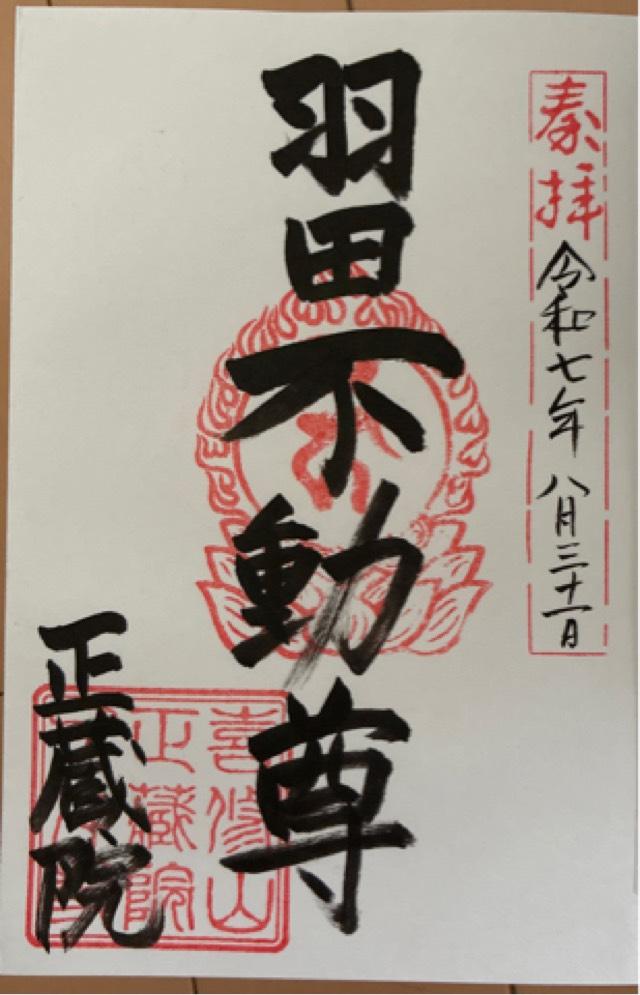 奉拝
令和七年八月三十一日
羽田不動尊
正蔵院
喜修山
正蔵院